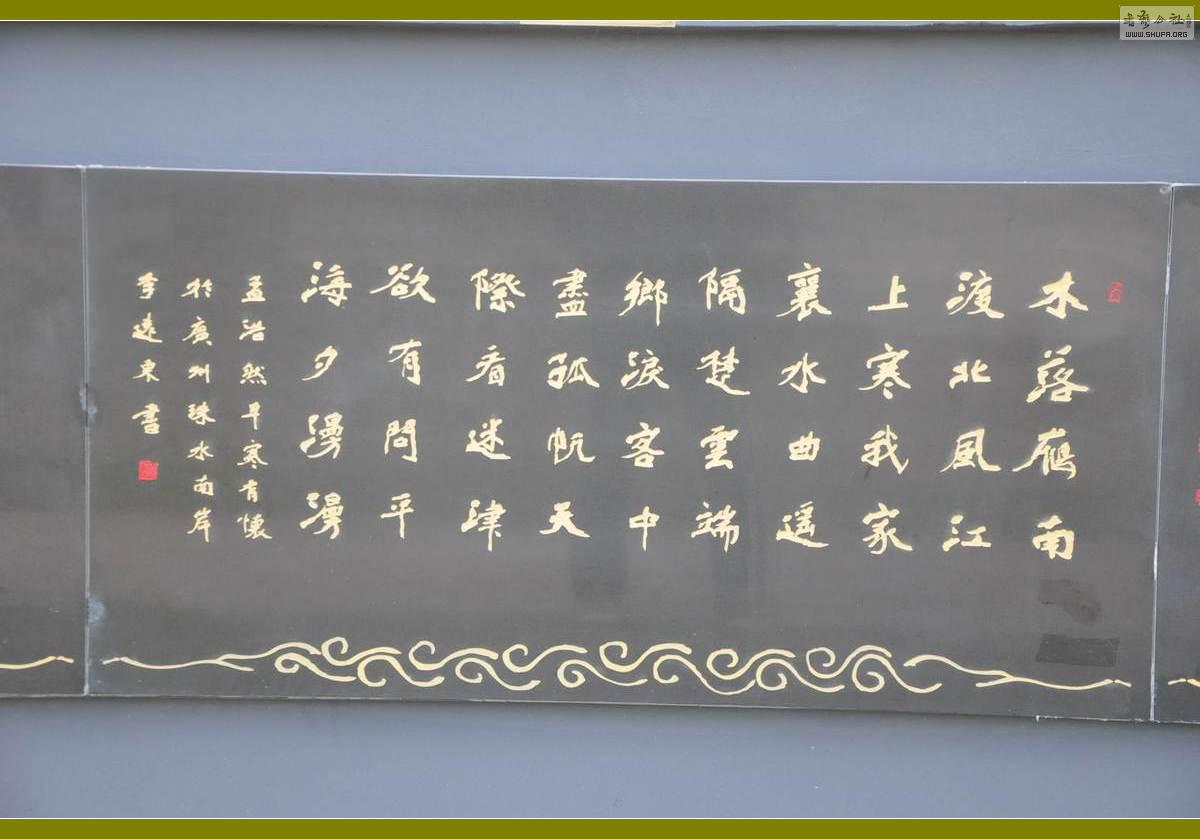 木落鴈南
渡北風江
上寒我家
襄水曲遥
隔楚雲端
鄉淚客中
盡孤帆天
際看迷津
欲有問平
海夕漫漫
孟浩然早寒有懷
於廣州珠水南岸
李遠東書
WWW.SHUFA.ORG